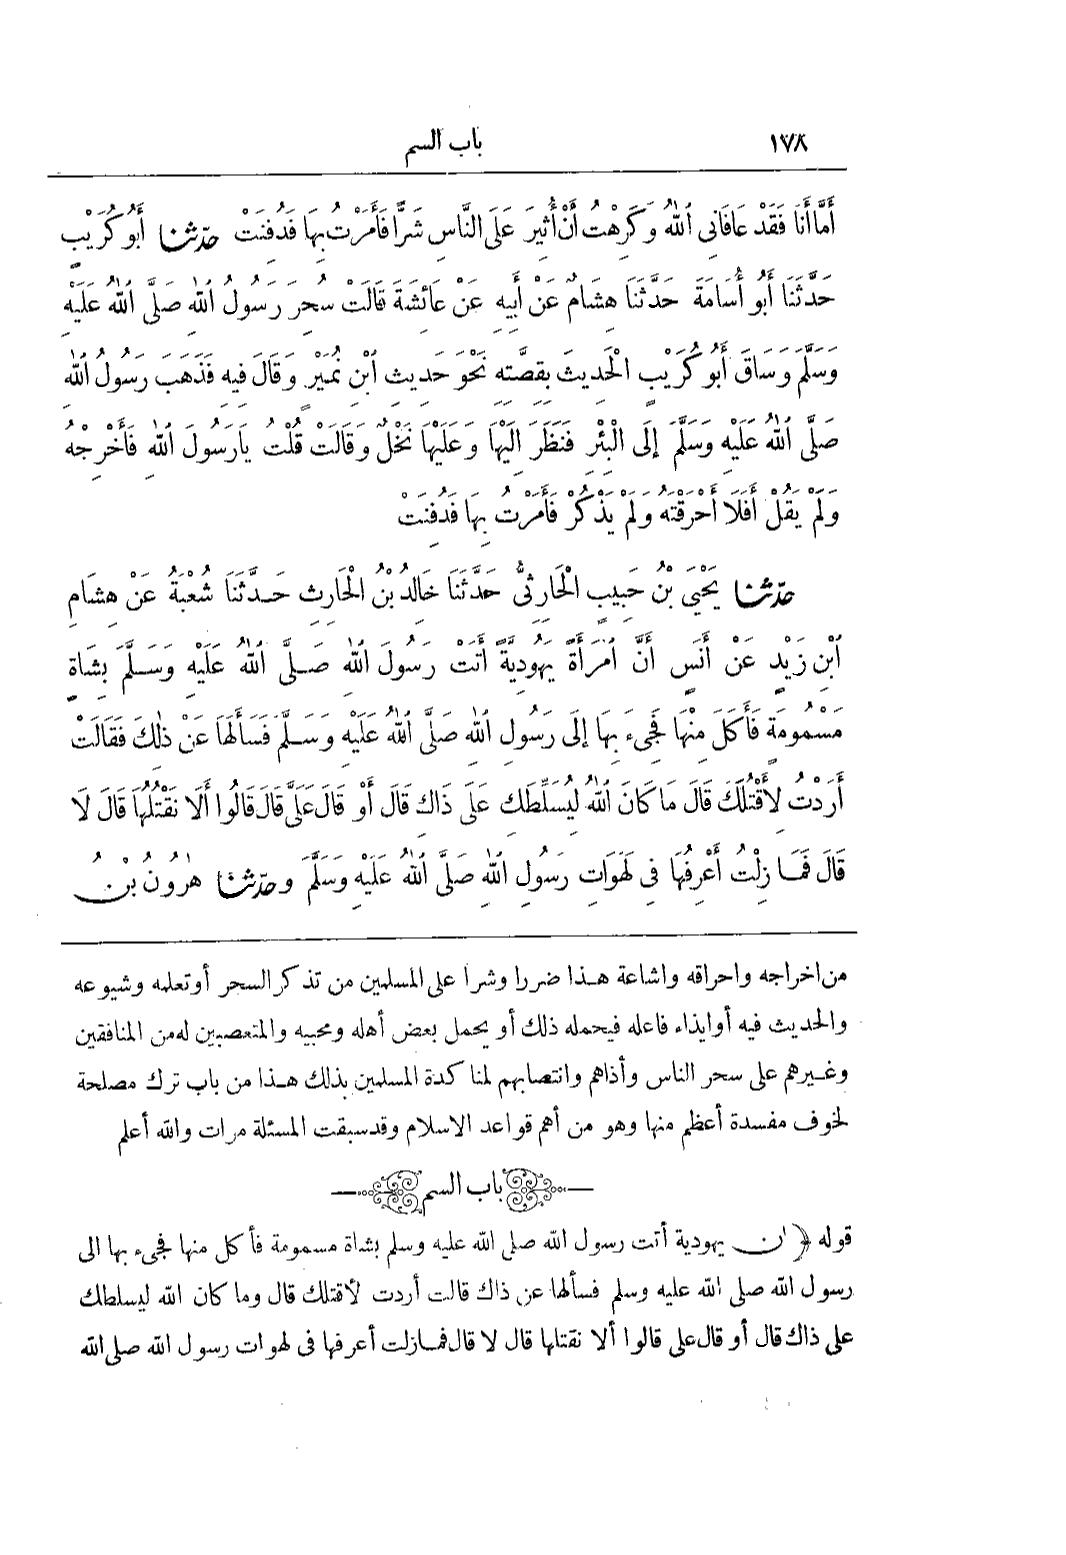 ١٧٨ باب السم
أَمَّا أَنَا فَقَدْ عَافَانِى اللّٰهُ وَكَرِهْتُ أَنْ أُثِيرَ عَلَى النَّاسِ شَرًّا فَأَمَرْتُ بِهَا فَدُفِنَتْ حدّثنا أَبُو كُرَيْبٍ
حَدَّثَنَا أَبُو أُسَامَةَ حَدَّثَنَا هِشَامٌ عَنْ أَبِيهِ عَنْ عَائِشَةَ قَالَتْ سُحِرَ رَسُولُ اللّٰهِ صَلَّى اللّٰهُ عَلَيْهِ
وَسَلَّمَ وَسَاقَ أَبُو كُرَيْبٍ الْحَدِيثَ بِقِصَّتِهِ نَحْوَ حَدِيثِ ابْنِ نُمَيْرٍ وَقَالَ فِيهِ فَذَهَبَ رَسُولُ اللّٰهِ
صَلَّى اللّٰهُ عَلَيْهِ وَسَلَّمَ إِلَى الْبِئْرِ فَنَظَرَ إِلَيْهَا وَعَلَيْهَا نَخْلٌ وَقَالَتْ قُلْتُ يَارَسُولَ اللّٰهِ فَأَخْرِجْهُ
وَلَمْ يَقُلْ أَفَلَا أَحْرَقْتَهُ وَلَمْ يَذْكُرْ فَأَمَرْتُ بِهَا فَدُفِنَتْ
حدّثنا يَحْيَى بْنُ حَبِيبٍ الْحَارِثِىُّ حَدَّثَنَا خَالِدُ بْنُ الْحَارِثِ حَدَّثَنَا شُعْبَةُ عَنْ هِشَامِ
ابْنِ زَيْدٍ عَنْ أَنَسٍ أَنَّ امْرَأَةً يَهُودِيَّةً أَتَتْ رَسُولَ اللّٰهِ صَلَّى اللّٰهُ عَلَيْهِ وَسَلَّمَ بِشَاةٍ
مَسْمُومَةٍ فَأَكَلَ مِنْهَا فَجِىءَ بِهَا إِلَى رَسُولِ اللّٰهِ صَلَّى اللّٰهُ عَلَيْهِ وَسَلَّمَ فَسَأَلَهَا عَنْ ذٰلِكَ فَقَالَتْ
أَرَدْتُ لِأَقْتُلَكَ قَالَ مَا كَانَ اللّٰهُ لِيُسَلِّطَكِ عَلَى ذَاكِ قَالَ أَوْ قَالَ عَلَىَّ قَالَ قَالُوا أَلَا نَقْتُلُهَا قَالَ لَا
قَالَ فَمَا زِلْتُ أَعْرِفُهَا فِى لَهَوَاتِ رَسُولِ اللّٰهِ صَلَّى اللّٰهُ عَلَيْهِ وَسَلَّمَ وحدّثنا هٰرُونُ بْنُ
من اخراجه واحراقه واشاعة هذا ضررا وشرا على المسلمين من تذكر السحر أو تعلمه وشيوعه
والحديث فيه أو ايذاء فاعله فيحمله ذلك أو يحمل بعض أهله ومحبيه والمتعصبين له من المنافقين
وغيرهم على سحر الناس وأذاهم وانتصابهم لمناكدة المسلمين بذلك هذا من باب ترك مصلحة
لخوف مفسدة أعظم منها وهو من أهم قواعد الاسلام وقد سبقت المسئلة مرات والله أعلم
باب السم
قوله ﴿ ان يهودية أتت رسول الله صلى الله عليه وسلم بشاة مسمومة فأكل منها فجىء بها الى
رسول الله صلى الله عليه وسلم فسألها عن ذاك قالت أردت لأقتلك قال وما كان الله ليسلطك
على ذاك قال أو قال على قالوا ألا نقتلها قال لا قال فمازلت أعرفها فى لهوات رسول الله صلى الله